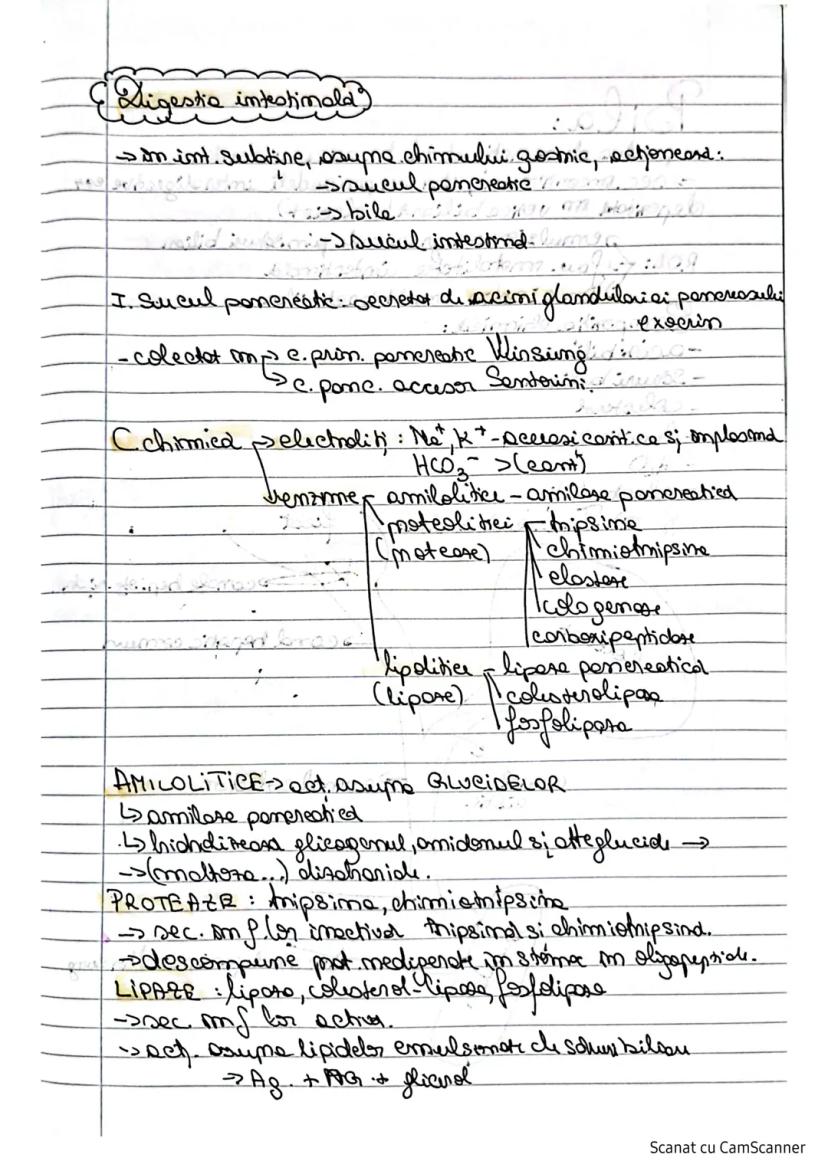 Digestia intestinală
→ în int. subțire, asupra chimului gastric, acționează:
→ sucul pancreatic
→ bila
→ sucul intestinal.
I. Sucul pancreatic: secretat de acinii glandulari ai pancreasului
exocrin
- colectat în → c. prin. pancreatic Wirsung
→ c. panc. accesor Santorini.
C. chimică → electroliți: Na⁺, K⁺ - aceeași cant. ca și în plasmă
HCO₃⁻ > (cant)
enzime amilolitice - amilaze pancreatică
proteolitici tripsina
(proteaze) chimiotripsina
elastaze
colagenaze
carboxipeptidaze
lipolitice lipaza pancreatică
(lipaze) colesterolipaza
fosfolipaza
AMILOLITICE → acț. asupra GLUCIDELOR
↳ amilaze pancreatică
↳ hidrolizează glicogenul, amidonul și alte glucide →
→ (maltoza...) dizaharide.
PROTEAZE: tripsina, chimiotripsina
→ sec. în f lor inactivă tripsină și chimiotripsină.
→ descompune prot. nedigerate în stomac în oligopeptide.
LIPAZE: lipaza, colesterol-lipaza, fosfolipaza
→ sec. în f lor activă.
→ acț. asupra lipidelor emulsionate de săruri biliare
→ Ag. + MG + glicerol
Scanat cu CamScanner